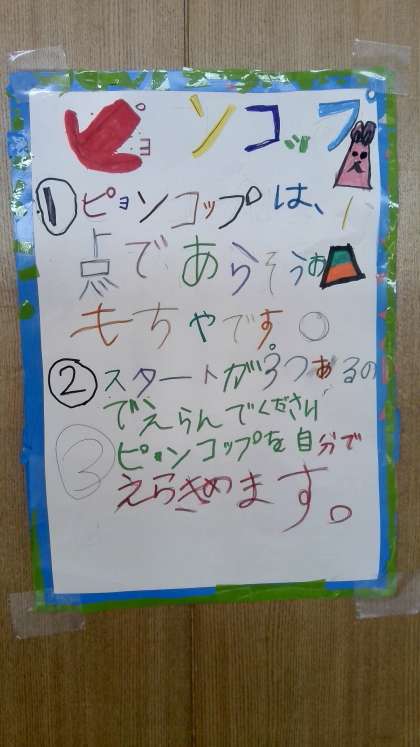 ピョンコップ
①ピョンコップは、
点であらそうお
もちゃです。
②スタートが3つあるの
でえらんでください
③ピョンコップを自分で
えらきめます。